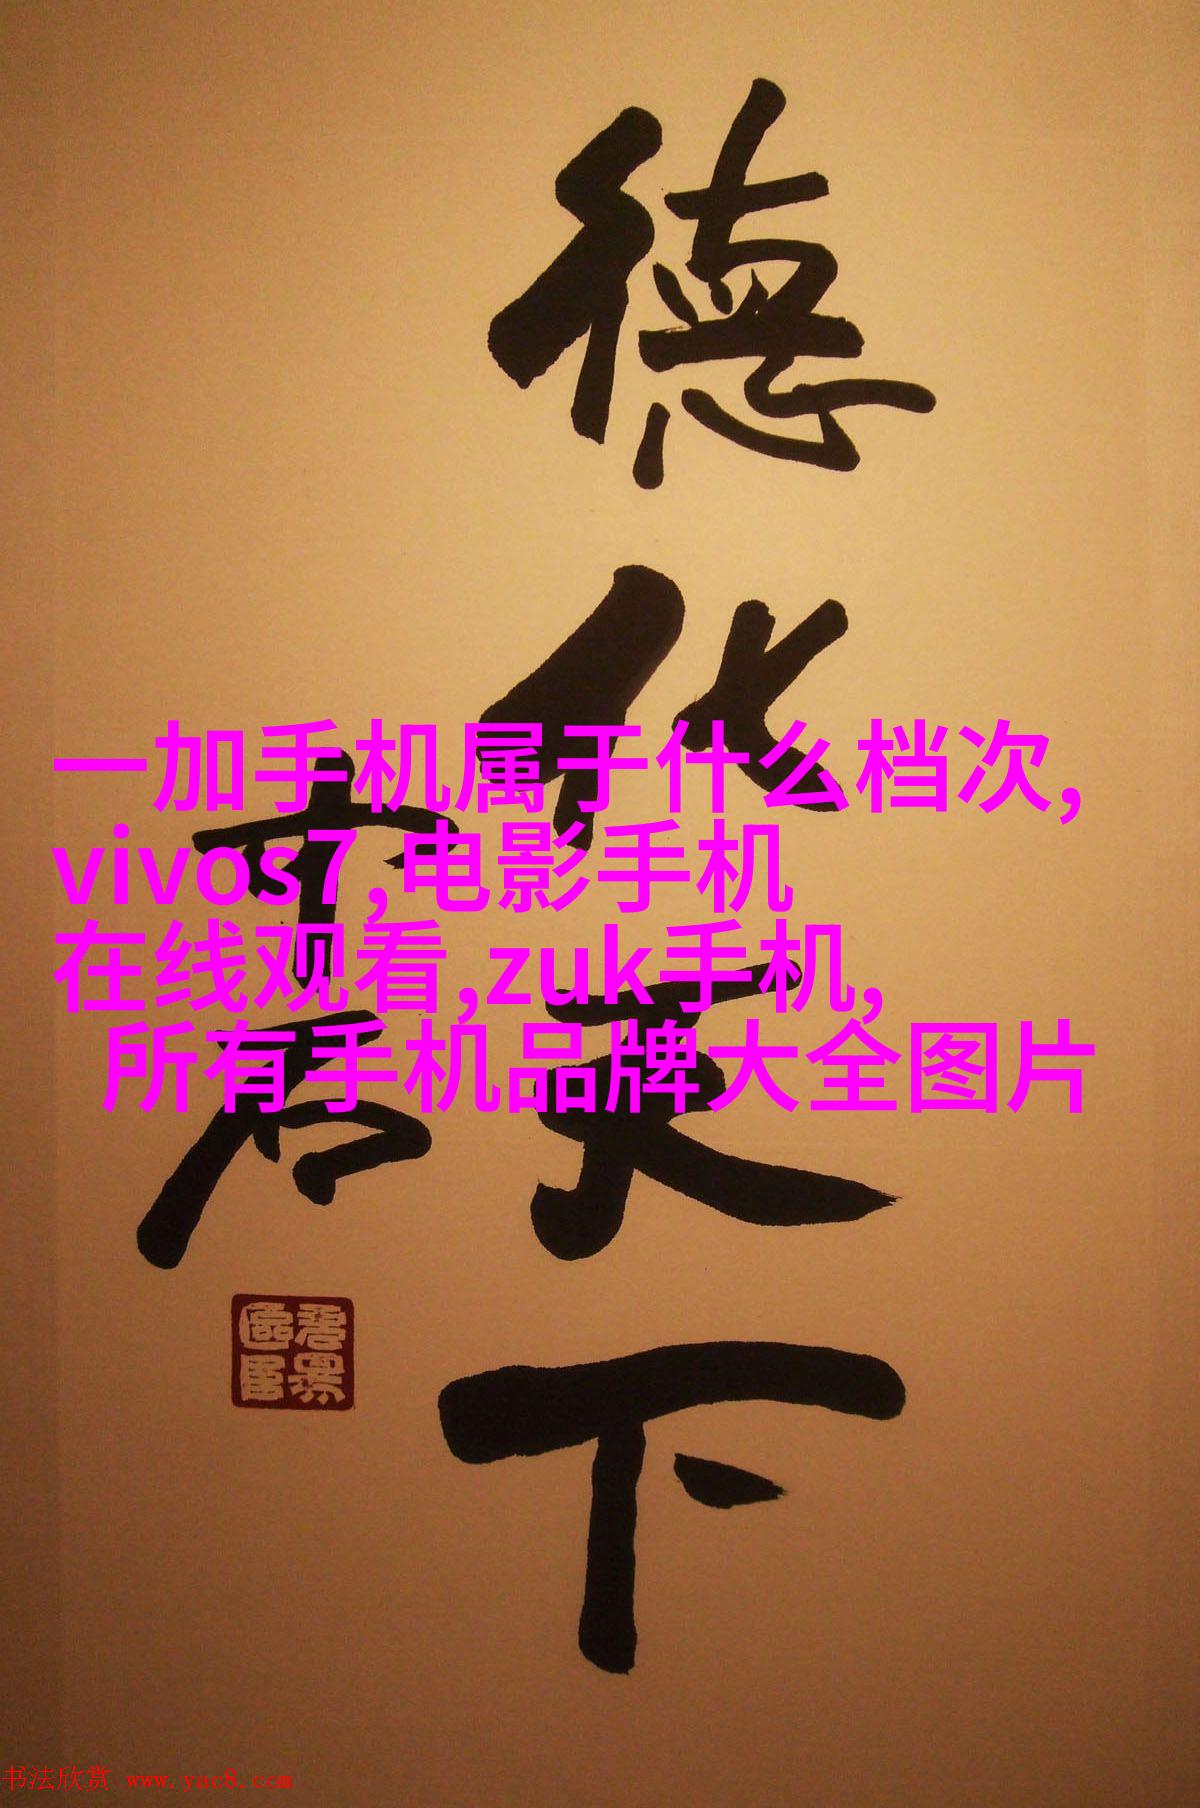 德化天下
一加手机属于什么档次,
vivos7,电影手机
在线观看,zuk手机,
所有手机品牌大全图片
书法欣赏 www.yac8.com